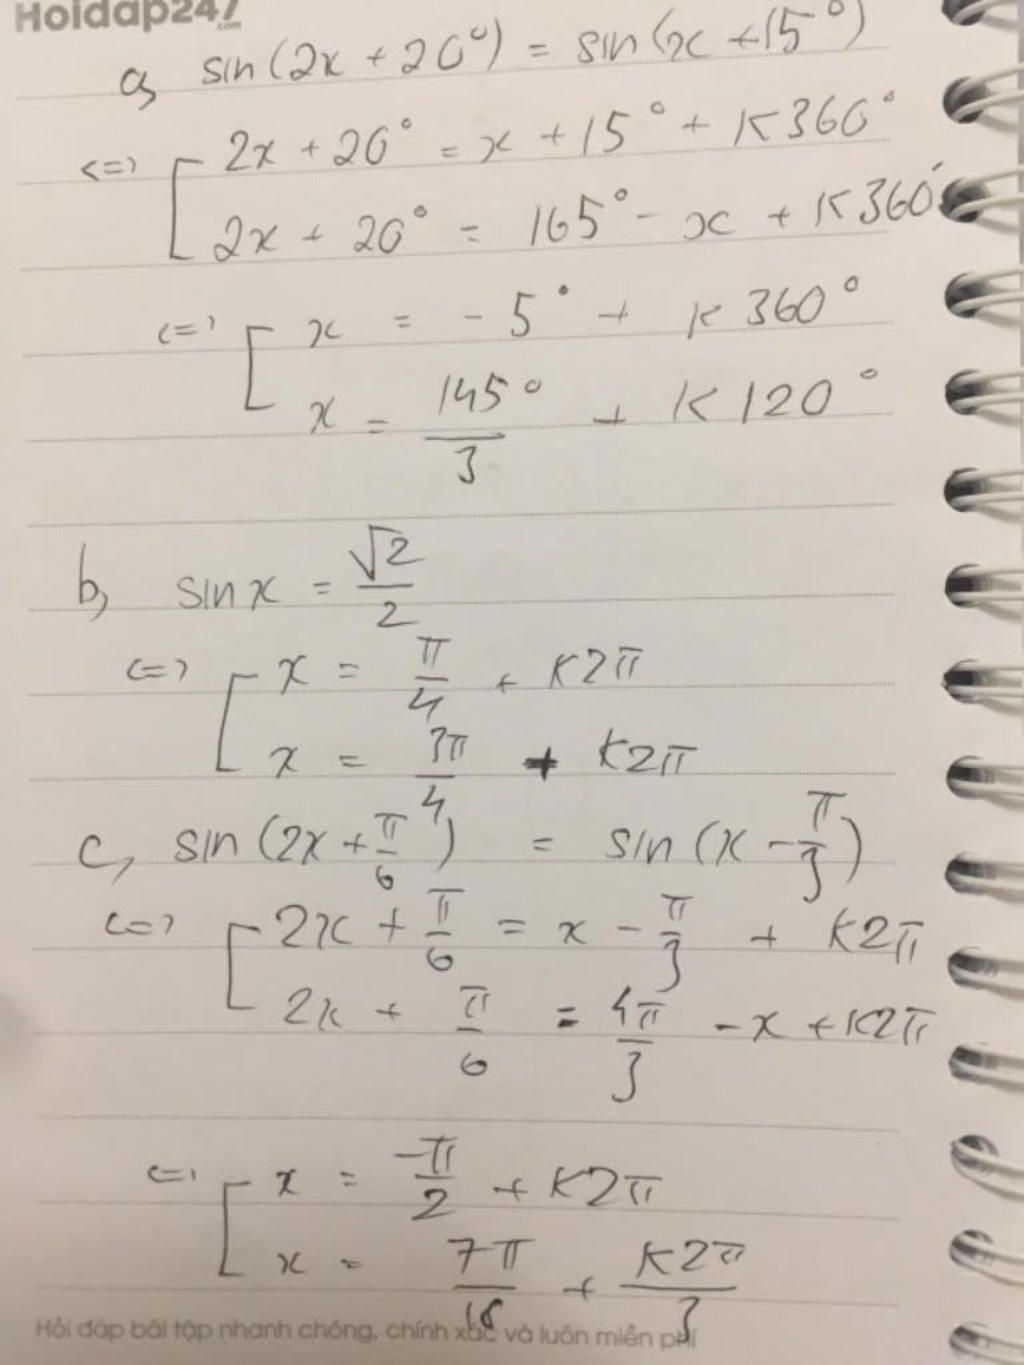 Hoidap247.com
a, sin(2x + 20°) = sin(x + 15°)
<=> [ 2x + 20° = x + 15° + K360°
2x + 20° = 165° - x + K360°
<=> [ x = -5° + K360°
x = 145°/3 + K120°
b, sinx = √2/2
<=> [ x = π/4 + K2π
x = 3π/4 + K2π
c, sin(2x + π/6) = sin(x - π/3)
<=> [ 2x + π/6 = x - π/3 + K2π
2x + π/6 = 4π/3 - x + K2π
<=> [ x = -π/2 + K2π
x = 7π/18 + K2π/3
Hỏi đáp bài tập nhanh chóng, chính xác và luôn miễn phí